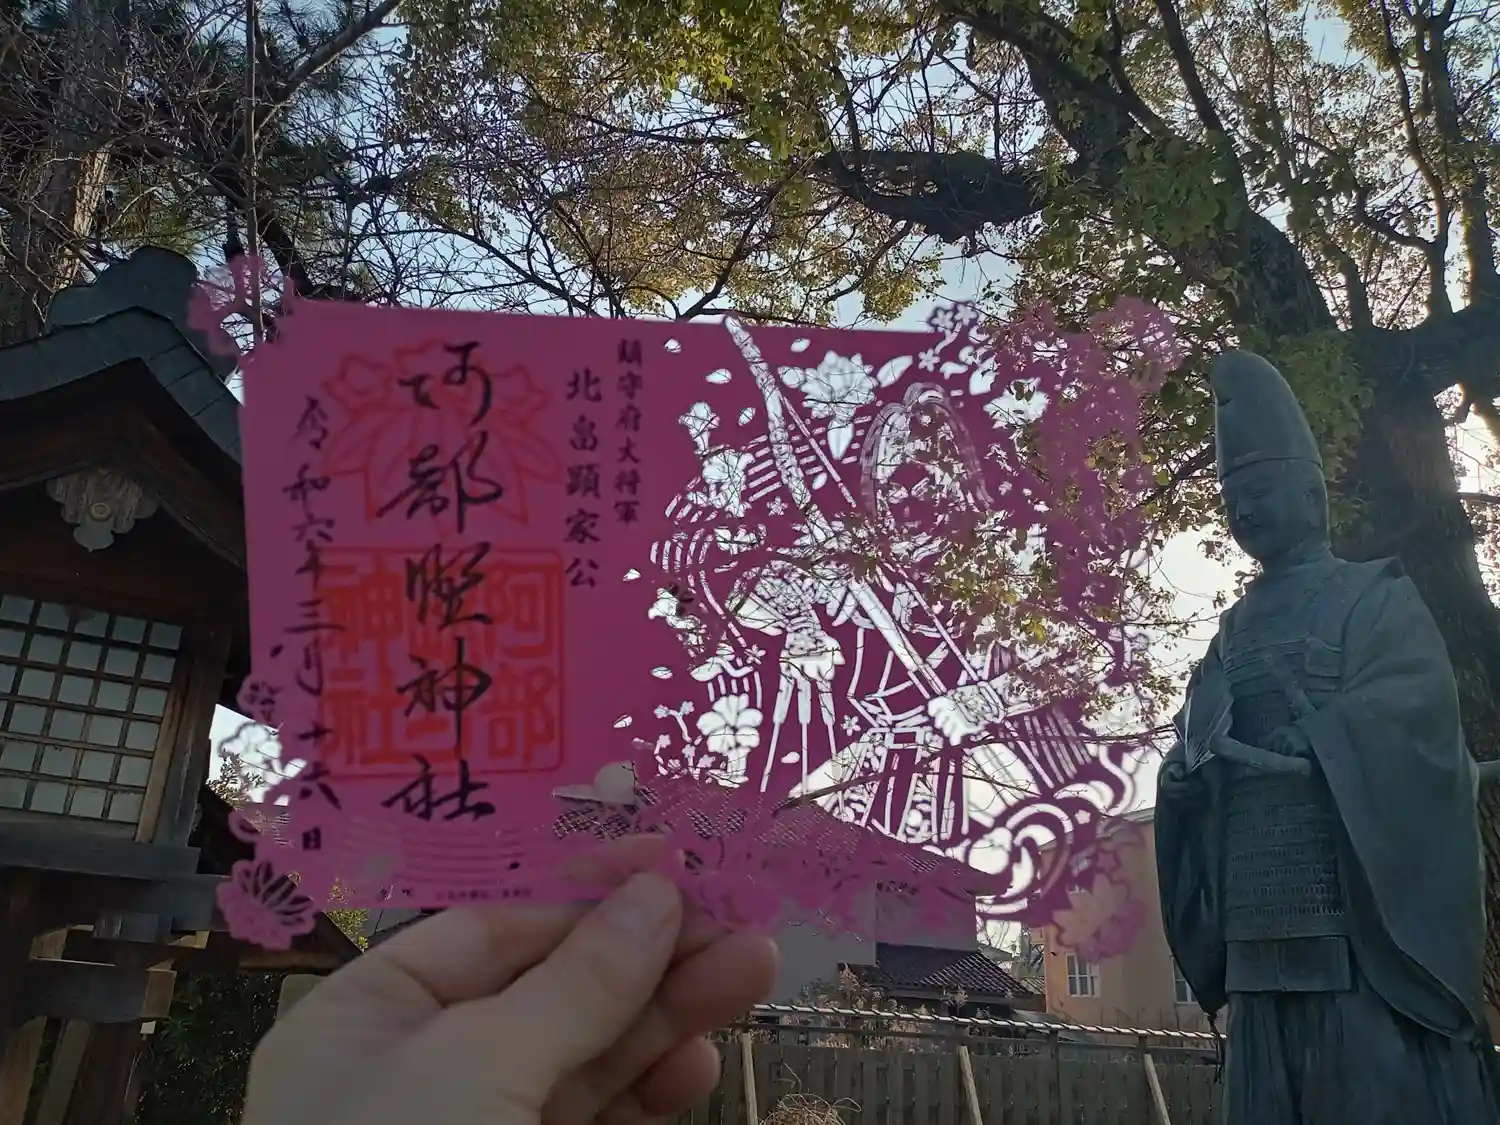 鎮守府大将軍
北畠顕家公
阿部野神社
令和六年三月十六日
阿部
神社